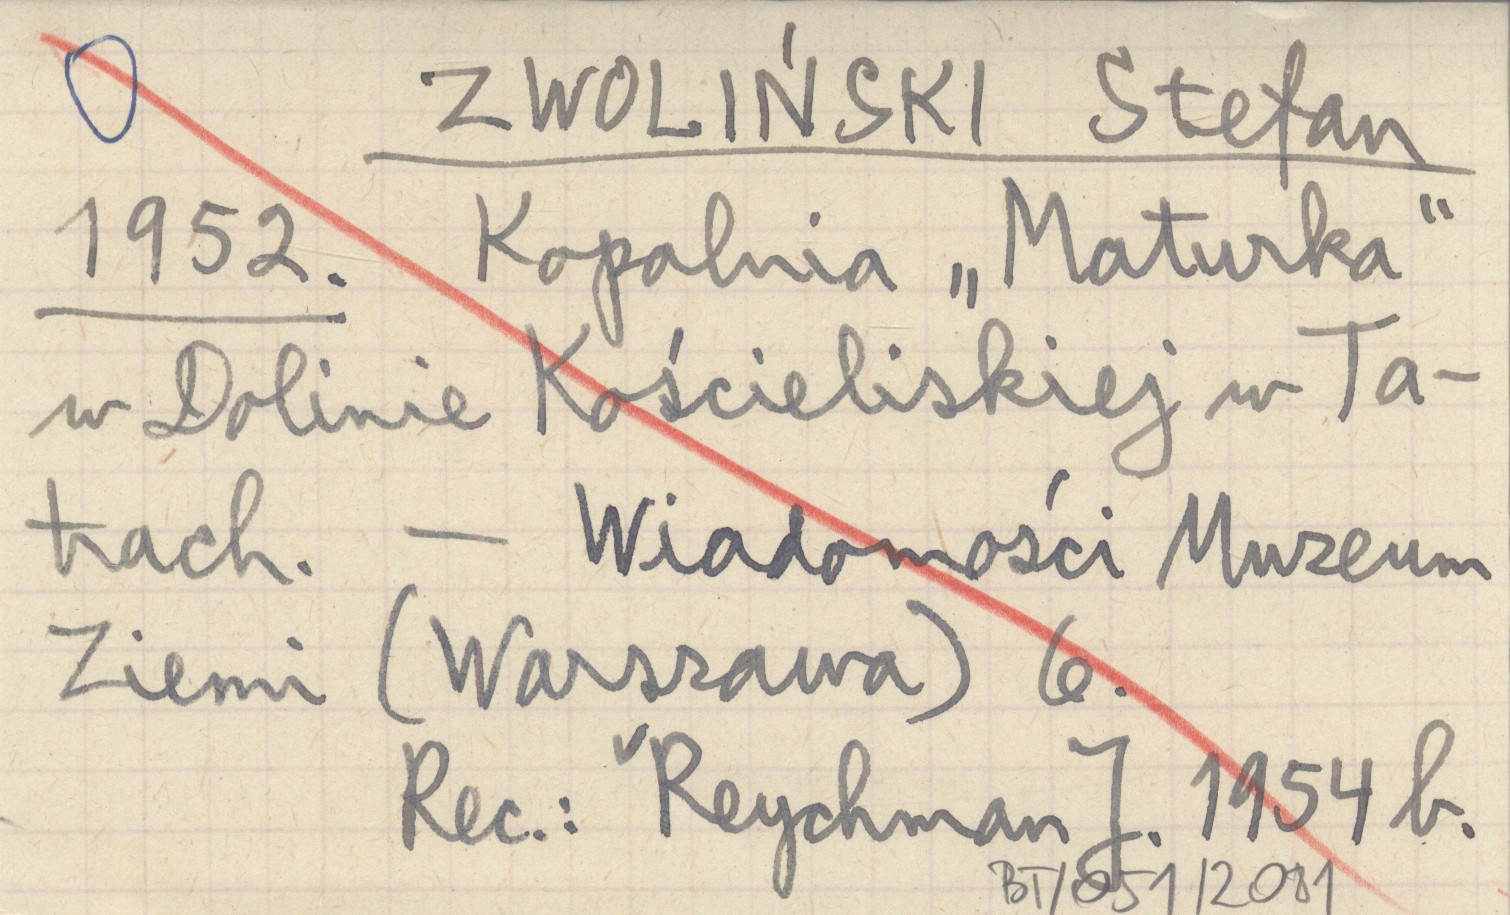 ZWOLIŃSKI Stefan
1952. Kopalnia „Maturka"
w Dolinie Kościeliskiej w Ta-
trach. — Wiadomości Muzeum
Ziemi (Warszawa) 6.
Rec.: Reychman J. 1954 b.
BT/051/2081